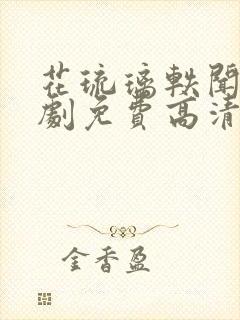 花琉璃軼聞
劇免費高清
金香盈